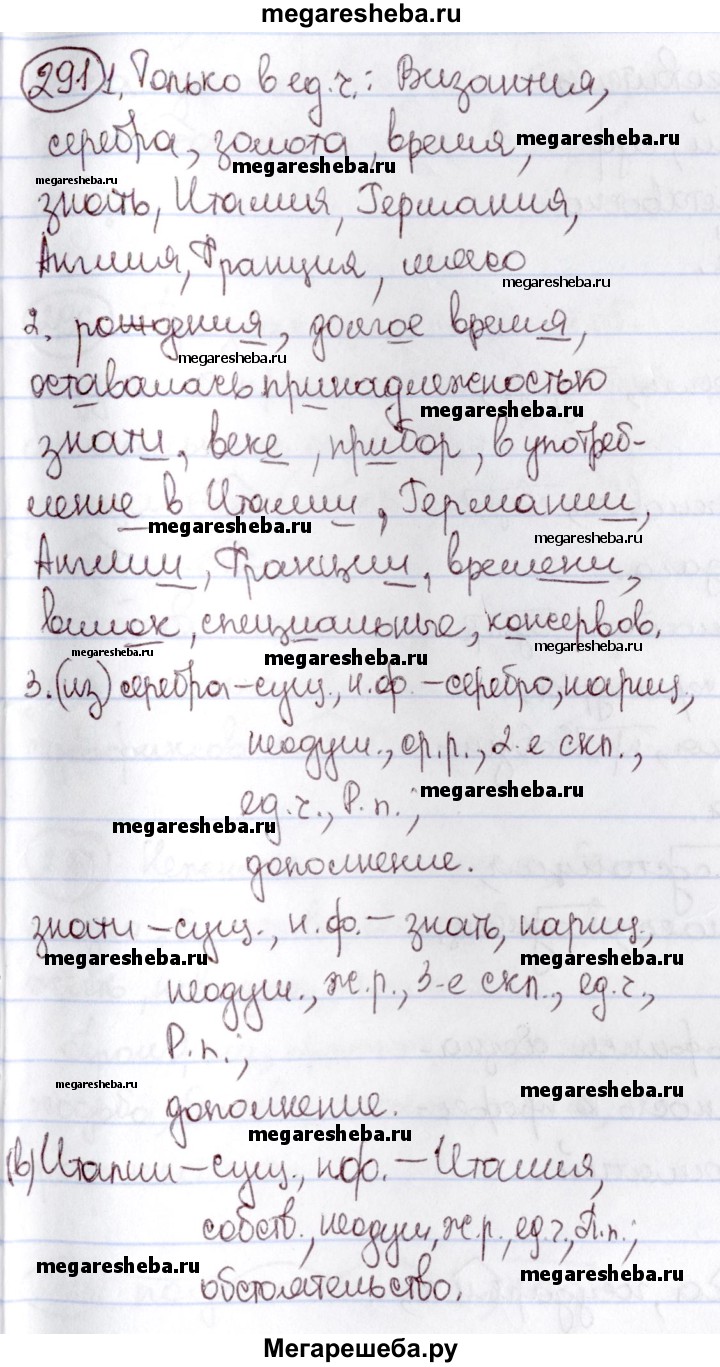 megaresheba.ru
291 1. Только в ед.ч.: Византия,
серебра, золота, время,
megaresheba.ru
megaresheba.ru
megaresheba.ru
знать, Италия, Германия,
Англия, Франция, мясо
megaresheba.ru
2. рождения, долгое время,
megaresheba.ru
оставалась принадлежностью
megaresheba.ru
знати, веке, прибор, в употреб-
ление в Италии, Германии,
megaresheba.ru
megaresheba.ru
Англии, Франции, времени,
вилок, специальные, консервов.
megaresheba.ru
megaresheba.ru
megaresheba.ru
3. (из) серебра – сущ., н.ф. – серебро, нариц.,
неодуш., ср.р., 2-е скл.,
megaresheba.ru
ед.ч., Р.п.;
megaresheba.ru
дополнение.
знати – сущ., н.ф. – знать, нариц.,
megaresheba.ru
megaresheba.ru
неодуш., ж.р., 3-е скл., ед.ч.,
Р.п.;
megaresheba.ru
megaresheba.ru
дополнение.
megaresheba.ru
(в) Италии – сущ., н.ф. – Италия,
собств., неодуш., ж.р., ед.ч., П.п.;
megaresheba.ru
megaresheba.ru
обстоятельство.
Мегарешеба.ру